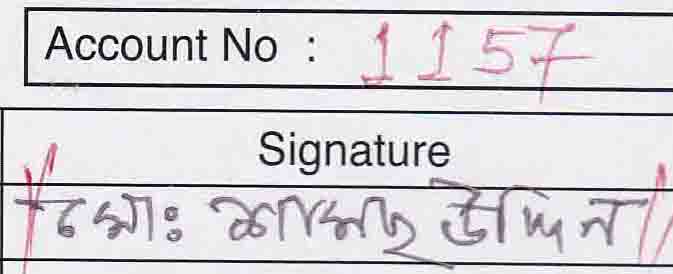 Account No : 1157
Signature
মোঃ শামছ উদ্দিন